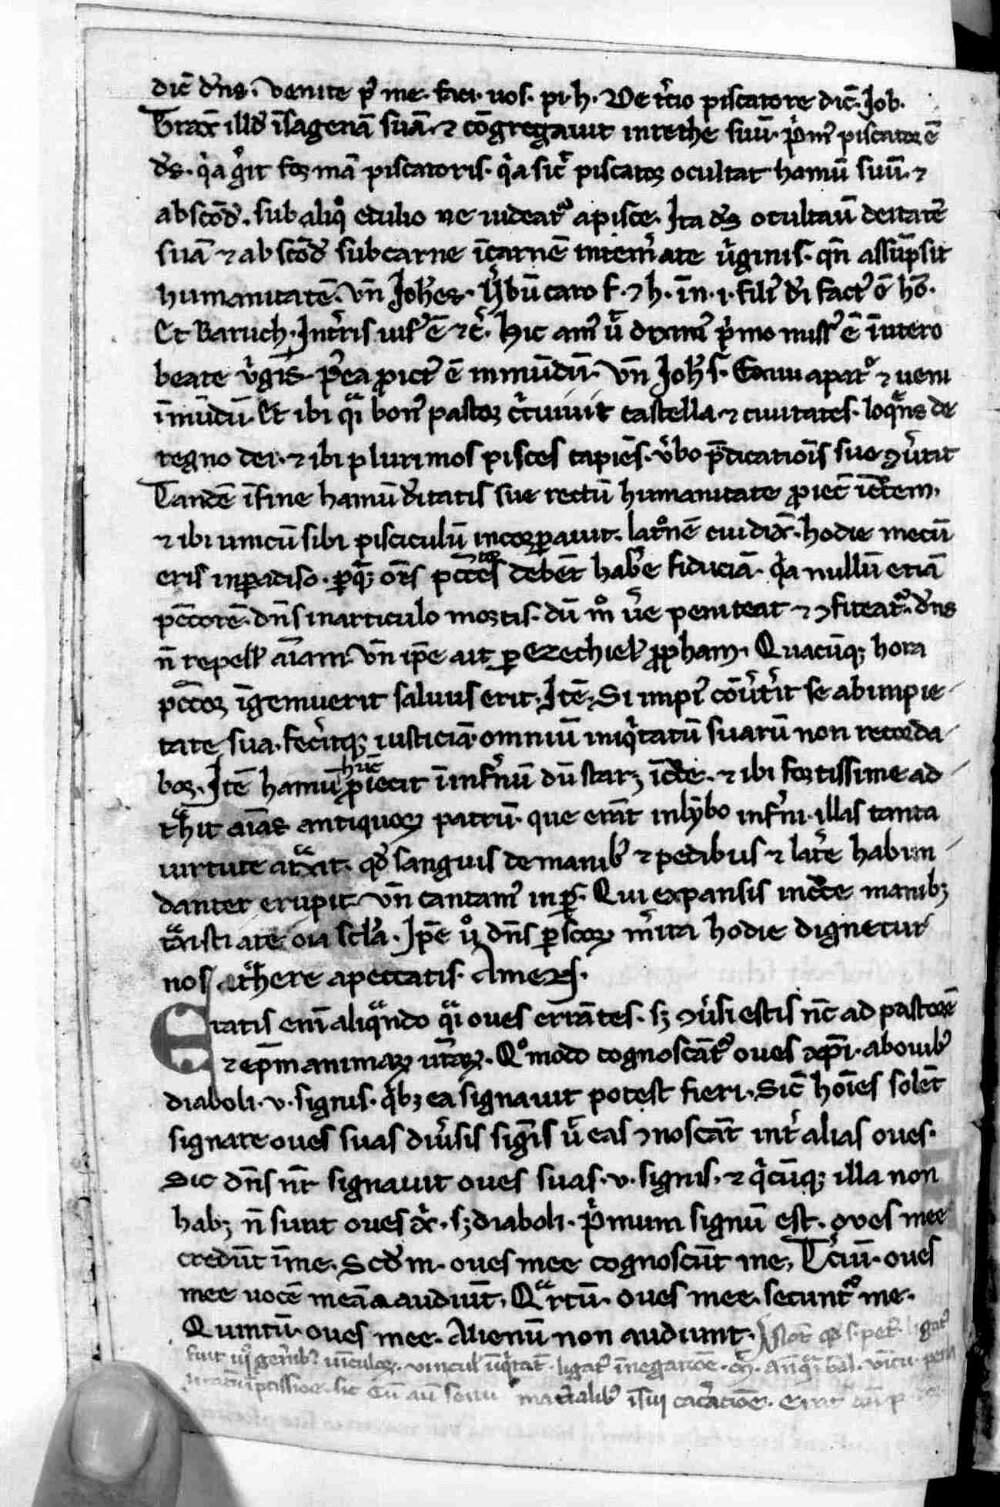 dic̄ dn̄s. Venite p̄ me. faci. uos. pi. h. De t̄cio piscatore dic̄. Job.
Trax̄ illd̄ ī sagenā suā. ⁊ cōgregauit in rethe suū. p̄mꝰ piscator ē
ds̄. q̄a g̊it formā piscatoris. q̄a sic̄ piscator ocultat hamū suū. ⁊
abscōd̄. sub aliq̊ edulio ne uideat᷑ a pisce. Ita ds̄ ocultauī deitatē
suā ⁊ abscōd̄ sub carne ī carnē intem̄ate ūginis. qn̄ assūpsit
humanitatē. Vn̄ Joh̄es. V̄bū caro f. ⁊ h. ī n. i. filiꝰ dī factꝰ ē hō.
Et Baruch. In t̄ris uisꝰ ē ⁊c̄. Hic amꝰ p̄mo missꝰ ē ī utero
beate v̄gīs. p̄ea ꝓiectꝰ ē in mūdū. Vn̄ Joh̄s. Exiui a pat᷑ ⁊ ueni
ī mūdū. Et ibi q̄i bonꝰ pastor c̄cuiuit castella ⁊ ciuitates. loq̄ns de
regno dei. ⁊ ibi plurimos pisces capiēs. v̄bo p̄dicatiōis sue ꝯūtit
Tandē ī fine hamū d̄itatis sue rectū humanitate ꝓiec̄ ī c̄cem.
⁊ ibi unicū sibi pisciculū incorꝑauit. lat̊nē cui dix̄. hodie mecū
eris in ꝑadiso. ꝑ q̄ oēs pc̄cōes debēt hab̄e fiduciā. q̄a nullū etiā
pc̄corē. dn̄s in articulo mortis. dū m̊ ūe peniteat ⁊ ꝯfiteat᷑. dn̄s
n̄ repell̄ aīam. Vn̄ ip̄e ait ꝑ Ezechiel̄ ꝓph̄am. Quacūqꝫ hora
pc̄cor ingemuerit saluus erit. Itē. Si impiꝰ cōūt̄it se ab impie
tate sua. fec̄itqꝫ iusticiā. omniū iniq̄tatū suarū non recorda
bor. Itē hamū hūc ꝓiecit ī infn̄ū dū staret ī c̄ce. ⁊ ibi fortissime ad
t̄hit aīas antiquorꝫ patrū. que erāt in lȳbo infn̄i. illas tanta
uirtute at̄xit. qd̄ sanguis de manibꝰ ⁊ pedibus ⁊ lat̄e habun
danter erupit. Vn̄ cantamꝰ in pꝰ. Qui expansis in c̄ce manibꝫ
t̄xisti a te oīa sc̄la. Ip̄e ū̊ dn̄s ꝑ scōꝝ m̄ita hodie dignetur
nos at̄here a peccatis. Amen.
Eratis enī aliq̄ndo q̄i oues errātes. sꝫ ꝯūsi estis nc̄ ad pastorē
⁊ ep̄m animarꝫ ūrarꝫ. Q̊modo cognoscāt᷑ oues xp̄i. ab ouibꝰ
diaboli. v. signis. q̄bꝫ ea signauit potest fieri. Sic̄ hoīes solēt
signare oues suas diū̄sis sigīs ū̄ eas ꝯnoscāt int̄ alias oues.
Sic dn̄s nr̄ signauit oues suas. v. signis. ⁊ q̄cūqꝫ illa non
habꝫ n̄ sunt oues sꝫ diaboli. p̄mum signū est. oues mee
credūt ī me. Scd̄m. oues mee cognoscūt me. Tc̄iū. oues
mee uocē meā audiūt. Q̄rtū. oues mee. secunt᷑ me.
Quintū. oues mee. Alienū non audiunt.